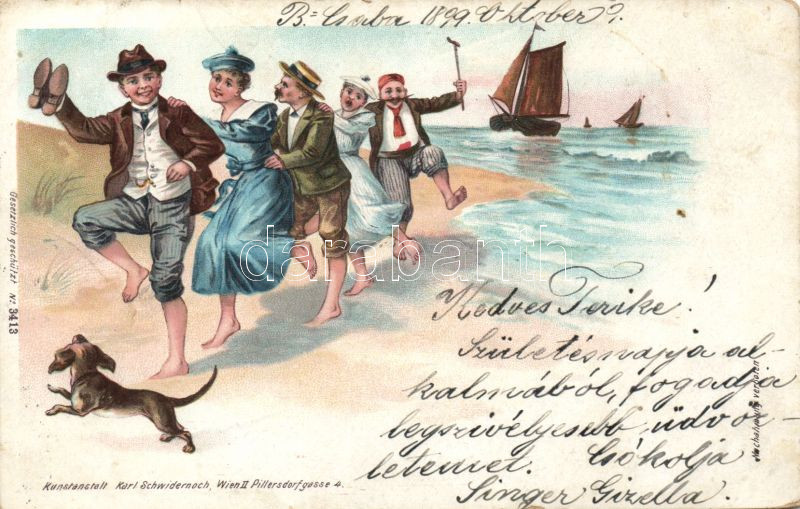 B= Csaba 1899. Oktober 7.
Gesetzlich geschützt Nº 3413
darabanth
Kedves Terike!
Születésnapja al-
kalmából, fogadja
legszívélyesebb üdvö-
letemet. Csókolja
Singer Gizella.
Nachahmung verboten
Kunstanstalt Karl Schwidernoch, Wien II Pillersdorfgasse 4.